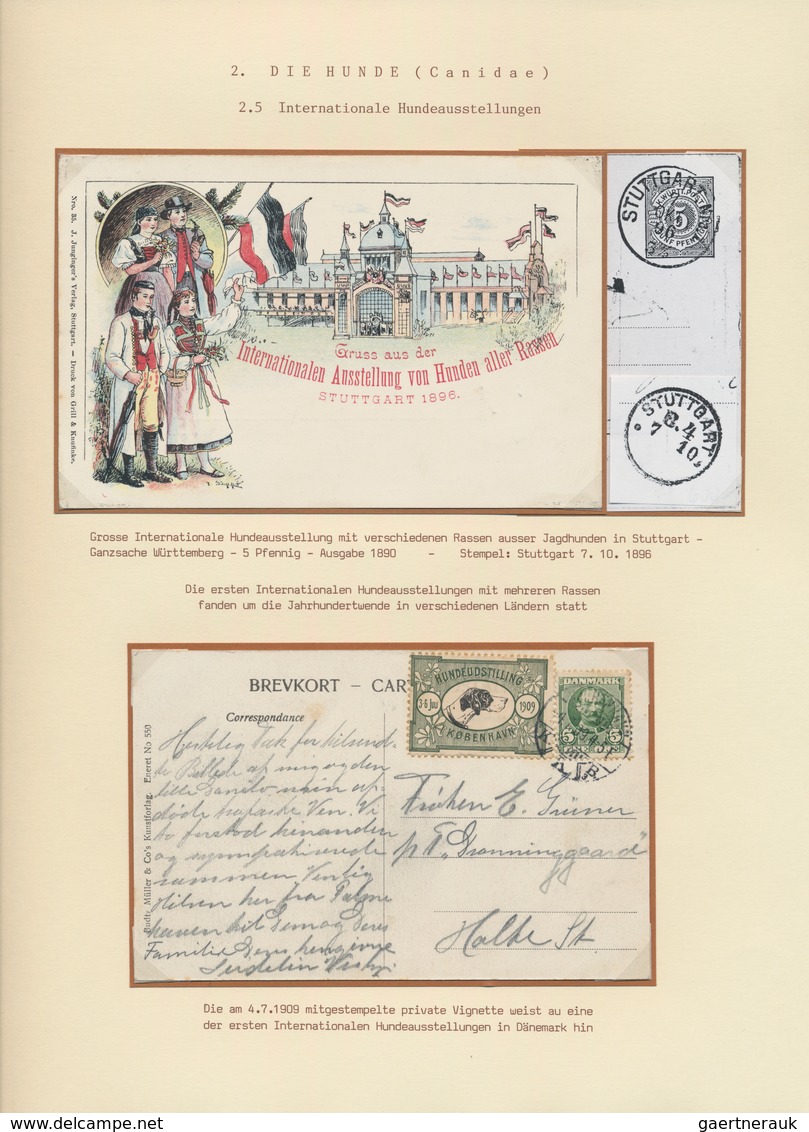 2. DIE HUNDE (Canidae)
2.5 Internationale Hundeausstellungen
Nro. 35. J. Junginger's Verlag, Stuttgart. — Druck von Grill & Knufinke.
Gruss aus der
Internationalen Ausstellung von Hunden aller Rassen
STUTTGART 1896.
STUTTGART
5
FÜNF PFENNIG
STUTTGART
8.4
7 10
Grosse Internationale Hundeausstellung mit verschiedenen Rassen ausser Jagdhunden in Stuttgart -
Ganzsache Württemberg - 5 Pfennig - Ausgabe 1890 - Stempel: Stuttgart 7. 10. 1896
Die ersten Internationalen Hundeausstellungen mit mehreren Rassen
fanden um die Jahrhundertwende in verschiedenen Ländern statt
BREVKORT – CAR
Correspondance
Budtz Müller & Co's Kunstforlag. Eneret No 550
HUNDEUDSTILLING
3-6 Juli
1909
KØBENHAVN
DANMARK
5 5
Hjertelig Tak for tilsend-
te Billede af mig og den
lille
døde Ven. Vi
to forstod hinanden
og sympatiserede
sammen. Venlig
Hilsen her fra
Familie Deres hengivne
Frøken E. Grüner
"Dronninggaard"
Holte St
Die am 4.7.1909 mitgestempelte private Vignette weist au eine
der ersten Internationalen Hundeausstellungen in Dänemark hin
gaertnerauk